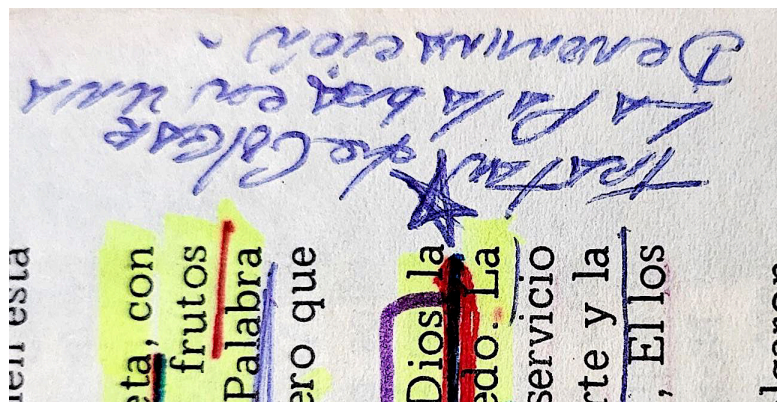 TRATAN de Colgar
La Palabra en una
Denominación.
en esta
eta, con
frutos
Palabra
ero que
Dios la
edo. La
servicio
rte y la
, El los